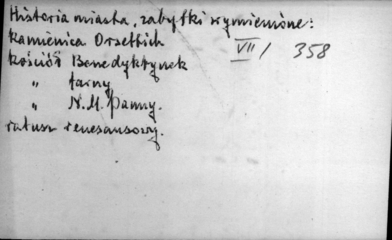 Historia miasta, zabytki wymienione:
kamienica Orsettich
VII/ 358
kościół Benedyktynek
" farny
" N.M. Panny.
ratusz renesansowy.